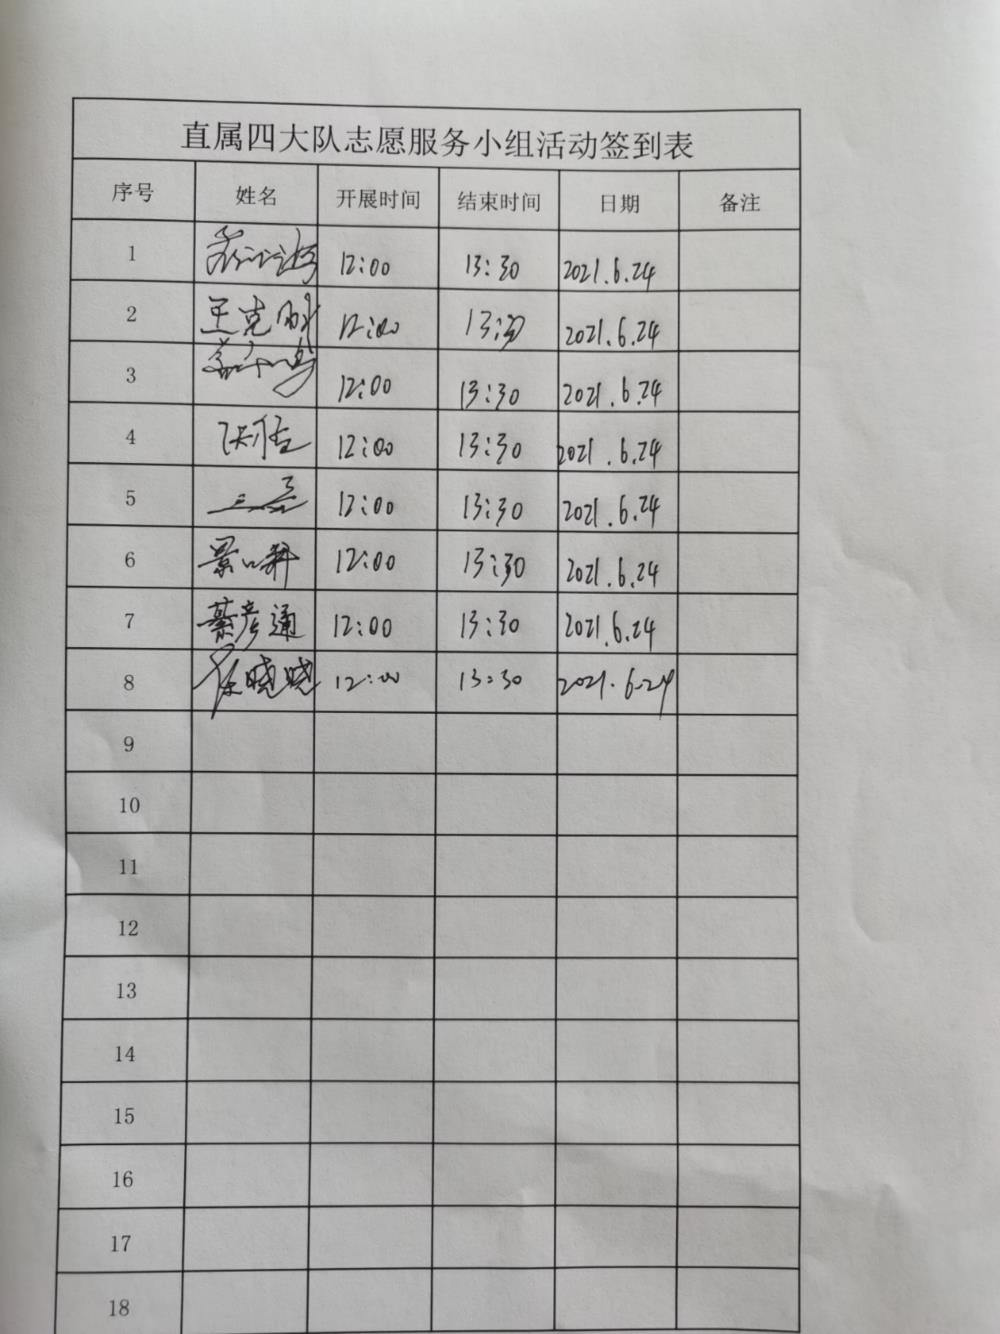 直属四大队志愿服务小组活动签到表
序号 姓名 开展时间 结束时间 日期 备注
1 12:00 13:30 2021.6.24
2 王克 12:00 13:30 2021.6.24
3 12:00 13:30 2021.6.24
4 12:00 13:30 2021.6.24
5 12:00 13:30 2021.6.24
6 景 12:00 13:30 2021.6.24
7 綦彦通 12:00 13:30 2021.6.24
8 徐晓晓 12:00 13:30 2021.6.24
9
10
11
12
13
14
15
16
17
18